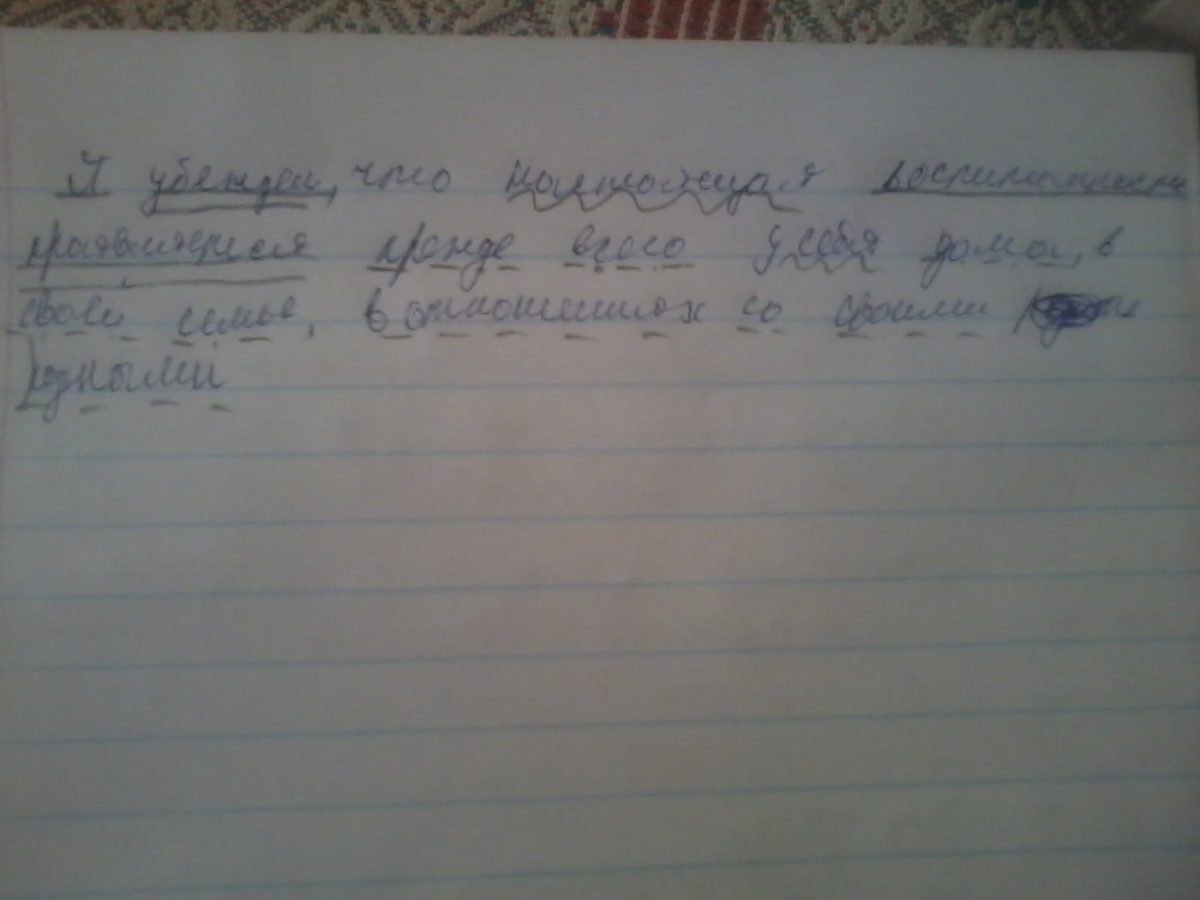 Я убежден, что настоящая воспитанность
проявляется прежде всего у себя дома, в
своей семье, в отношениях со своими
родными